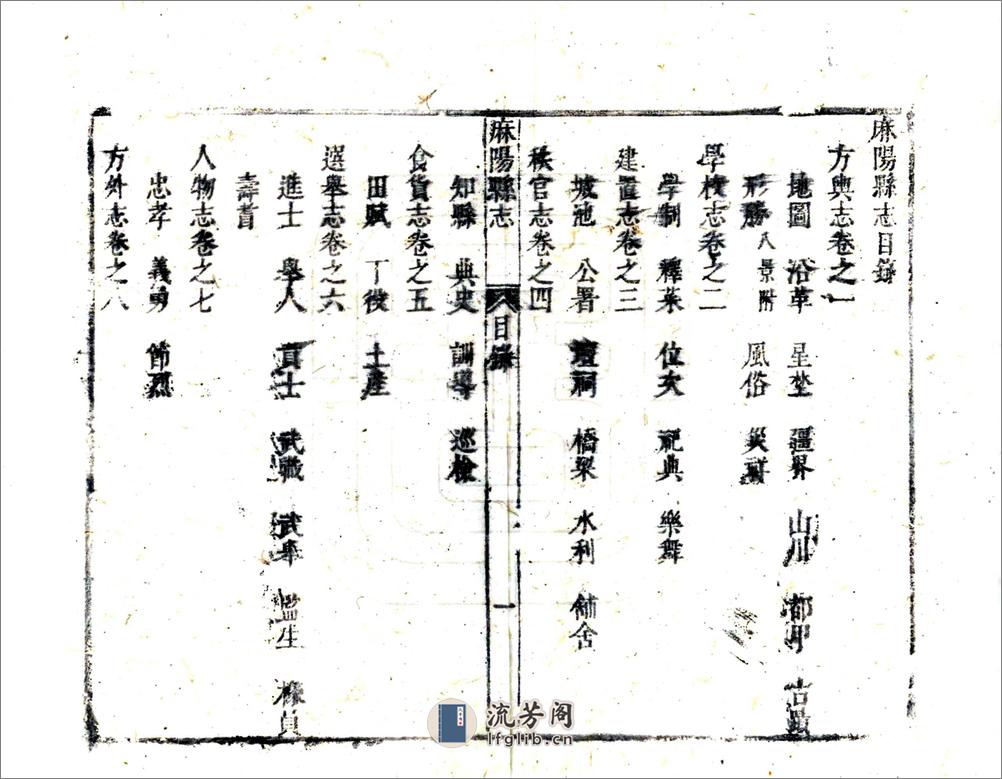 麻陽縣志目錄
方輿志卷之一
地圖 沿革 星埜 疆界 山川 都甲 古蹟
形勝 八景附 風俗 災祥
學校志卷之二
學制 釋菜 位次 祀典 樂舞
建置志卷之三
城池 公署 壇祠 橋梁 水利 舖舍
秩官志卷之四
麻陽縣志 目錄 一
知縣 典史 訓導 巡檢
食貨志卷之五
田賦 丁役 土產
選舉志卷之六
進士 舉人 貢士 武職 武舉 監生 椽員
壽耆
人物志卷之七
忠孝 義勇 節烈
方外志卷之八
流芳阁
lfglib.cn